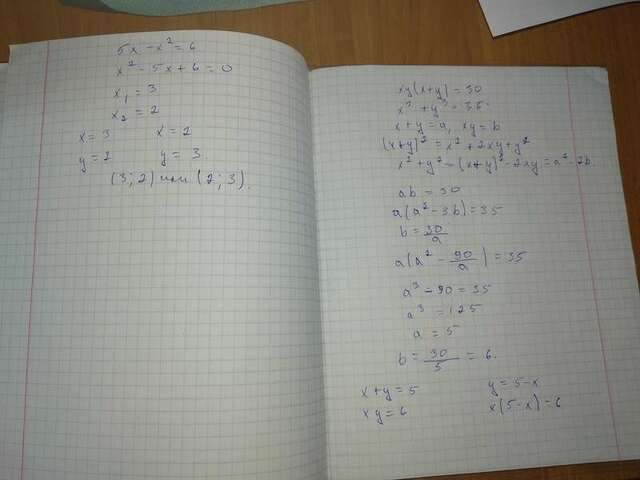 5x - x² = 6
x² - 5x + 6 = 0
x₁ = 3
x₂ = 2
x = 3 x = 2
y = 2 y = 3
(3; 2) или (2; 3).
xy(x+y) = 30
x³ + y³ = 35
x+y = a, xy = b
(x+y)² = x² + 2xy + y²
x² + y² = (x+y)² - 2xy = a² - 2b
ab = 30
a(a² - 3b) = 35
b = 30/a
a(a² - 90/a) = 35
a³ - 90 = 35
a³ = 125
a = 5
b = 30/5 = 6.
x + y = 5 y = 5-x
xy = 6 x(5-x) = 6